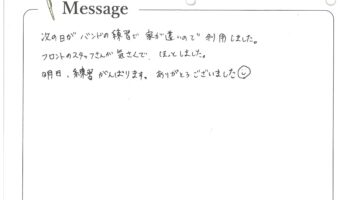 Message
次の日が バンドの練習で 家が遠いので 利用しました。
フロントのスタッフさんが 気さくで、ほっとしました。
明日、練習がんばります。ありがとうございました